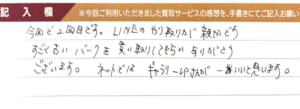 記入欄 ※今回ご利用いただきました買取サービスの感想を、手書きにてご記入お願い
今回で2回目です。LINEのやり取りが親切です
すごくいい バークを 買い取りしてもらい ありがとう
ございます。ネットでは ギャラリーいけがみが 一番いいと思います。